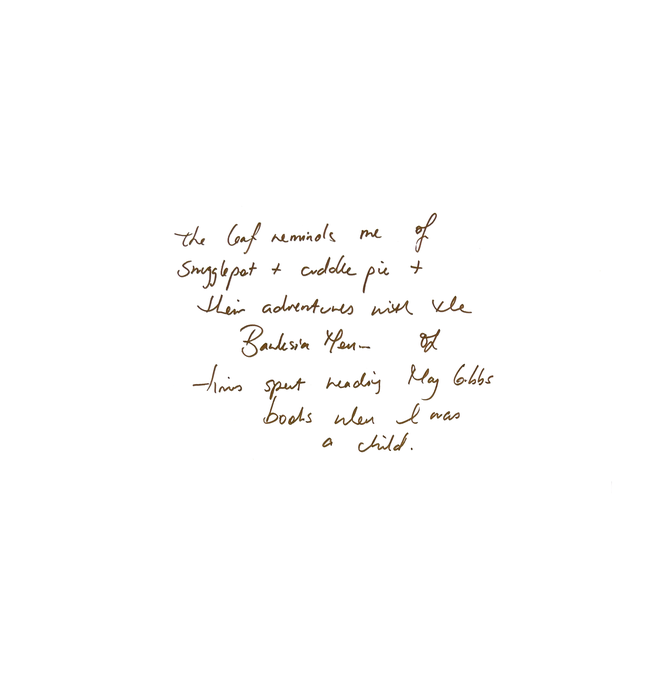 the leaf reminds me of
Snugglepot + cuddle pie +
their adventures with the
Banksia Men - of
times spent reading May Gibbs
books when I was
a child.